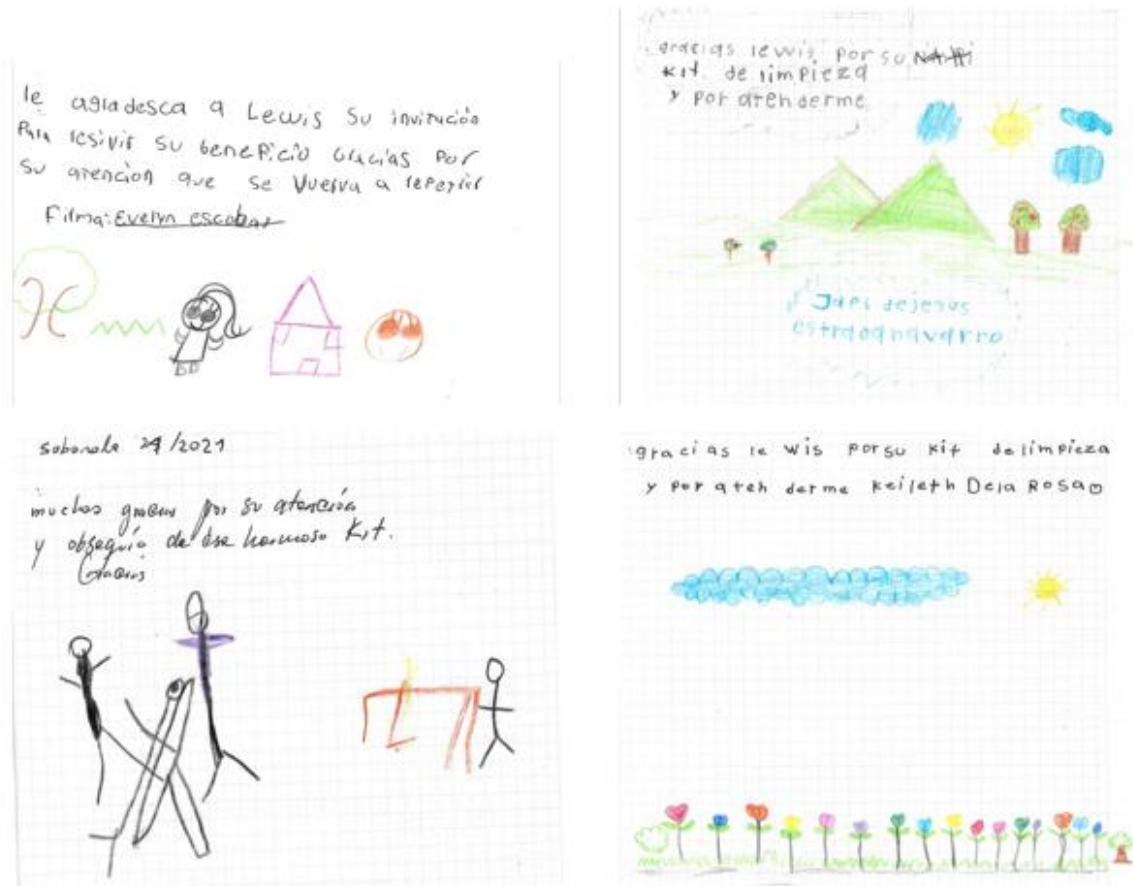 le agradesca a Lewis su invitación
Para resivir su beneficio Gracias por
su atencion que se vuerva a repetir
Filma: Evelyn escobar
gracias lewis por su
kit de limpieza
y por atenderme
dejesus
sabanale 24/2021
muchas gracias por su atención
y obsequio de ese hermoso Kit.
Gracias
gracias le wis por su kit de limpieza
y por aten derme Keileth De la Rosa